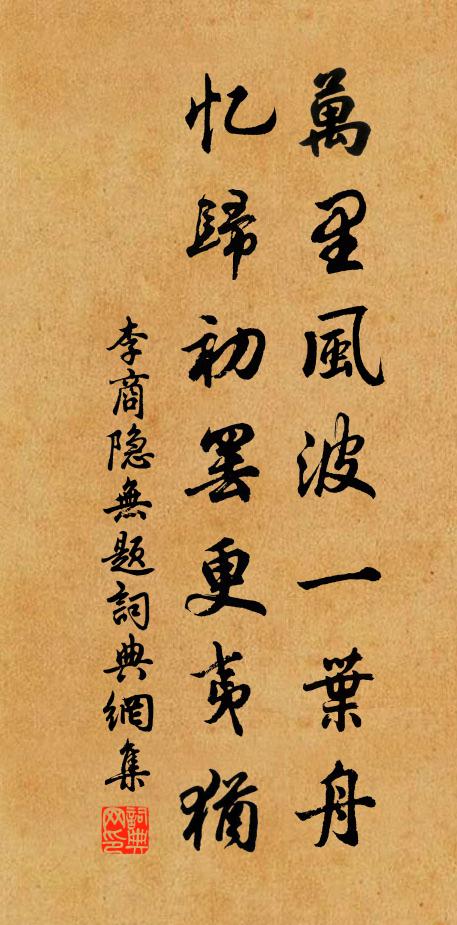 萬里風波一葉舟
忆歸初罢更夷猶
李商隐無题詞典網集
詞典網印